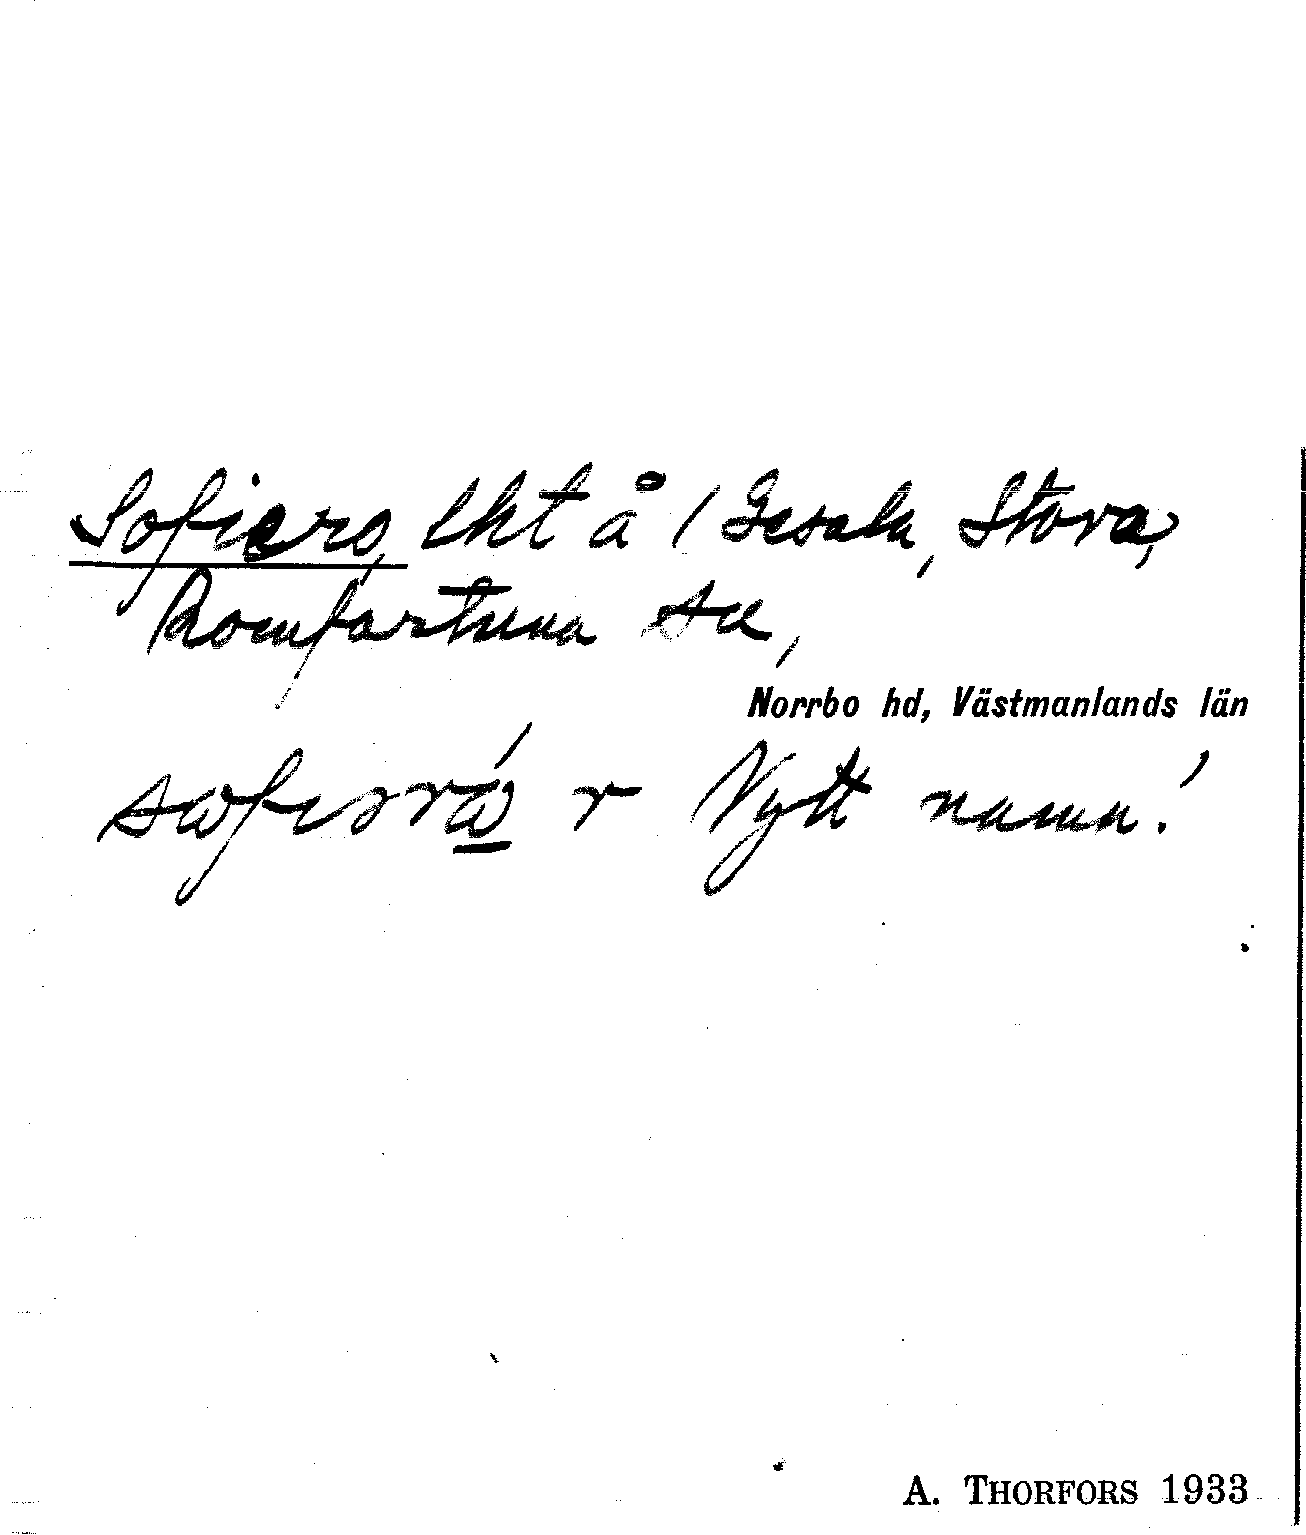 Sofiero, lht å / Gesala, Stora,
Romfartuna sn,
Norrbo hd, Västmanlands län
r Nytt namn!
A. THORFORS 1933